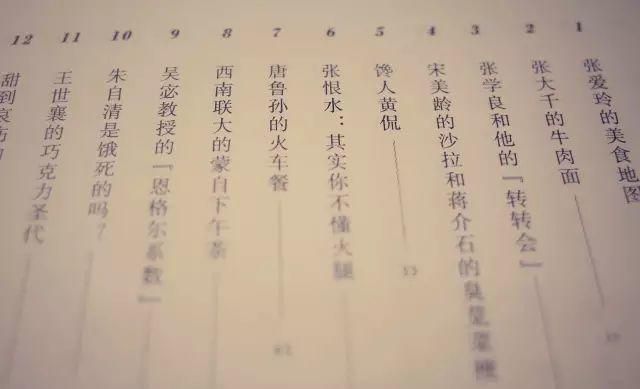 1 张爱玲的美食地图
2 张大千的牛肉面
3 张学良和他的『转转会』
4 宋美龄的沙拉和蒋介石的
5 馋人黄侃
6 张恨水：其实你不懂火腿
7 唐鲁孙的火车餐
8 西南联大的蒙自下午茶
9 吴宓教授的『恩格尔系数』
10 朱自清是饿死的吗？
11 王世襄的巧克力圣代
12 甜到哀伤的